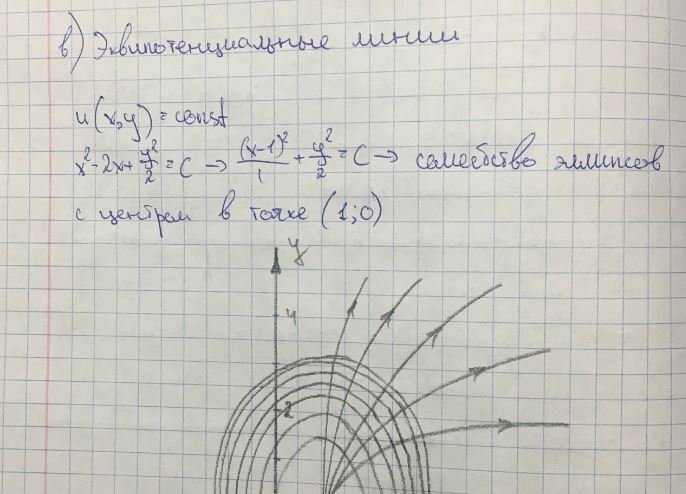 в) Эквипотенциальные линии
u(x,y)=const
x²-2x+y²/2=C → (x-1)²/1+y²/2=C → семейство эллипсов
с центром в точке (1;0)
y
4
2